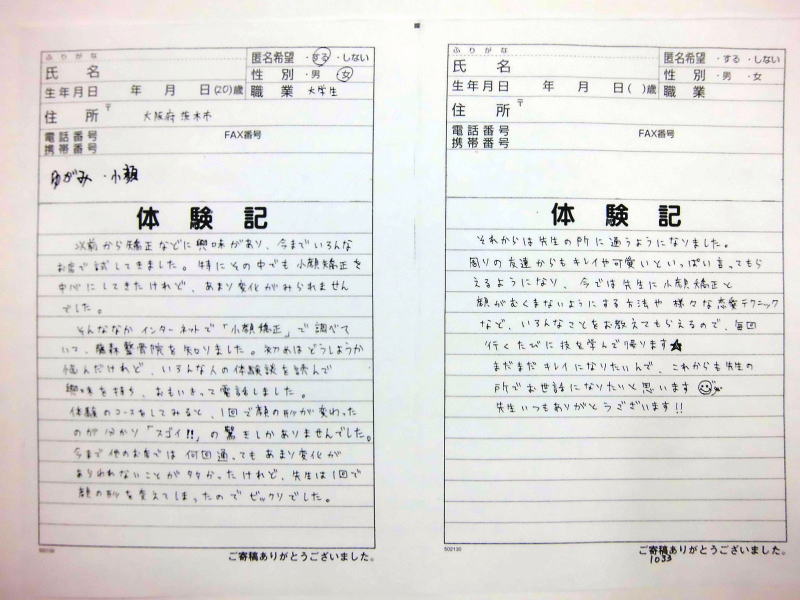 ふりがな
氏 名
匿名希望 ・する ・しない
性 別 ・男 ・女
生年月日 年 月 日(20)歳
職 業 大学生
住 所 〒 大阪府茨木市
電話番号 FAX番号
携帯番号
ゆがみ・小顔
体 験 記
以前から矯正などに興味があり、今までいろんな
お店で試してきました。特にその中でも小顔矯正を
中心にしてきたけれど、あまり変化がみられません
でした。
そんななかインターネットで「小顔矯正」で調べて
いて、藤森整骨院を知りました。初めはどうしようか
悩んだけれど、いろんな人の体験談を読んで
興味を持ち、おもいきって電話しました。
体験のコースをしてみると、1回で顔の形が変わった
のが分かり「スゴイ!!」の驚きしかありませんでした。
今まで他のお店では何回通ってもあまり変化が
あらわれないことが多かったけれど、先生は1回で
顔の形を変えてしまったのでビックリでした。
ご寄稿ありがとうございました。
ふりがな
氏 名
匿名希望 ・する ・しない
性 別 ・男 ・女
生年月日 年 月 日( )歳
職 業
住 所 〒
電話番号 FAX番号
携帯番号
体 験 記
それからは先生の所に通うようになりました。
周りの友達からもキレイや可愛いといっぱい言ってもら
えるようになり、今では先生に小顔矯正と
顔がむくまないようにする方法や様々な恋愛テクニック
など、いろんなことをお教えてもらえるので、毎回
行くたびに技を学んで帰ります★
まだまだキレイになりたいんで、これからも先生の
所でお世話になりたいと思います
先生いつもありがとうございます!!
502130
ご寄稿ありがとうございました。
1033